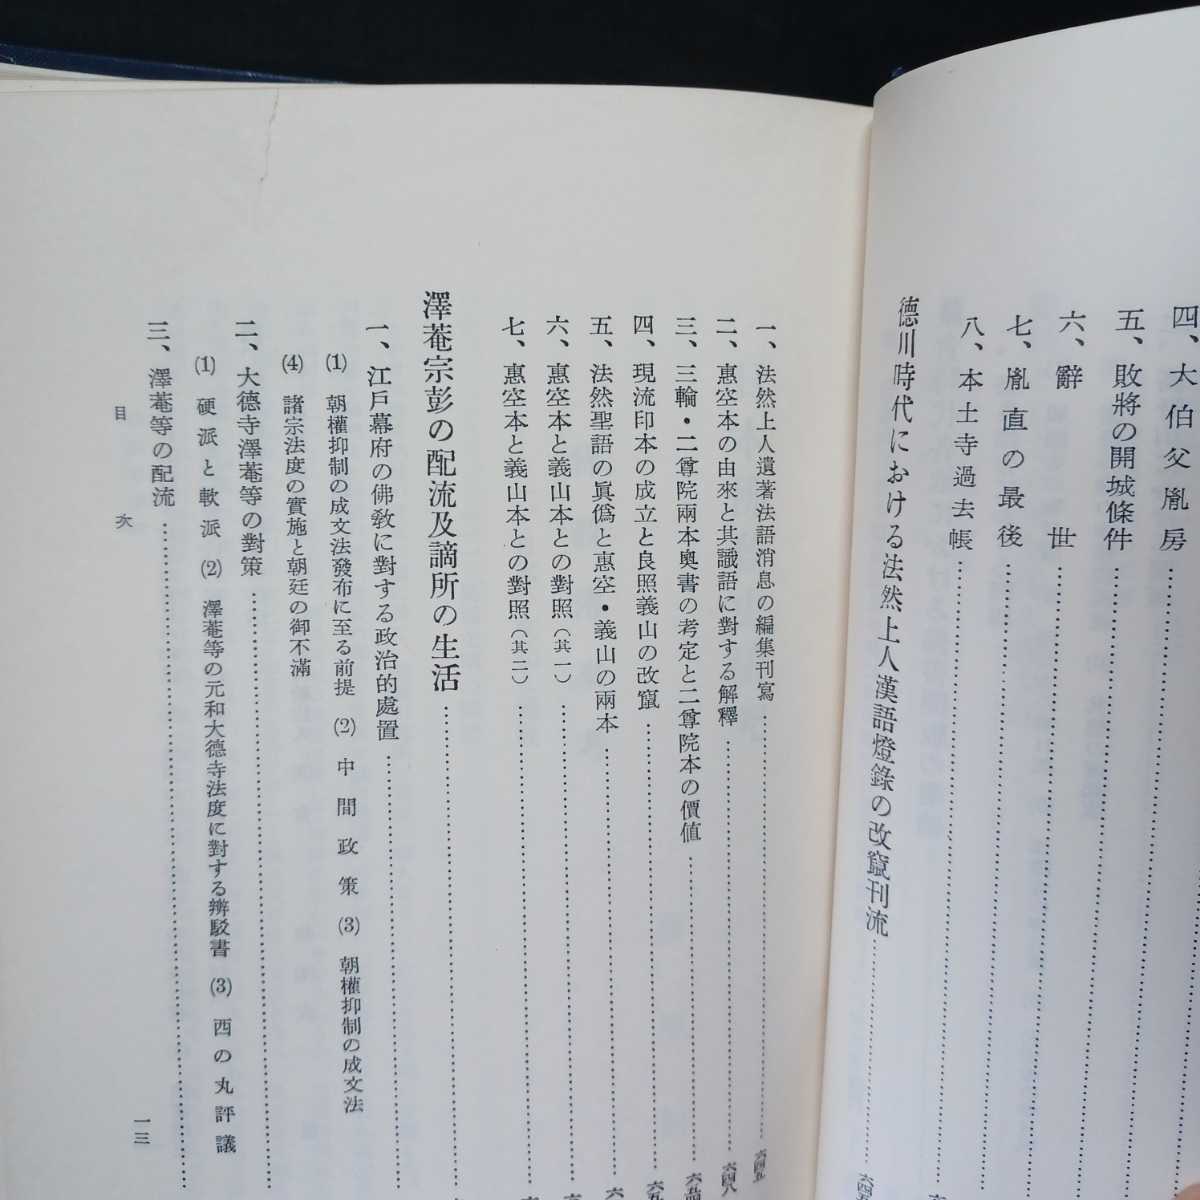 四、大伯父胤房
五、敗將の開城條件
六、辭世
七、胤直の最後
八、本土寺過去帳
德川時代における法然上人漢語燈錄の改竄刊流
一、法然上人遺著法語消息の編集刊寫 六四五
二、惠空本の由來と其識語に對する解釋 六四八
三、三輪・二尊院兩本奧書の考定と二尊院本の價値
四、現流印本の成立と良照義山の改竄
五、法然聖語の眞僞と惠空・義山の兩本
六、惠空本と義山本との對照（其一）
七、惠空本と義山本との對照（其二）
澤菴宗彭の配流及謫所の生活
一、江戶幕府の佛敎に對する政治的處置
(1) 朝權抑制の成文法發布に至る前提 (2) 中間政策 (3) 朝權抑制の成文法
(4) 諸宗法度の實施と朝廷の御不滿
二、大德寺澤菴等の對策
(1) 硬派と軟派 (2) 澤菴等の元和大德寺法度に對する辨駁書 (3) 西の丸評議
三、澤菴等の配流
目次
一三